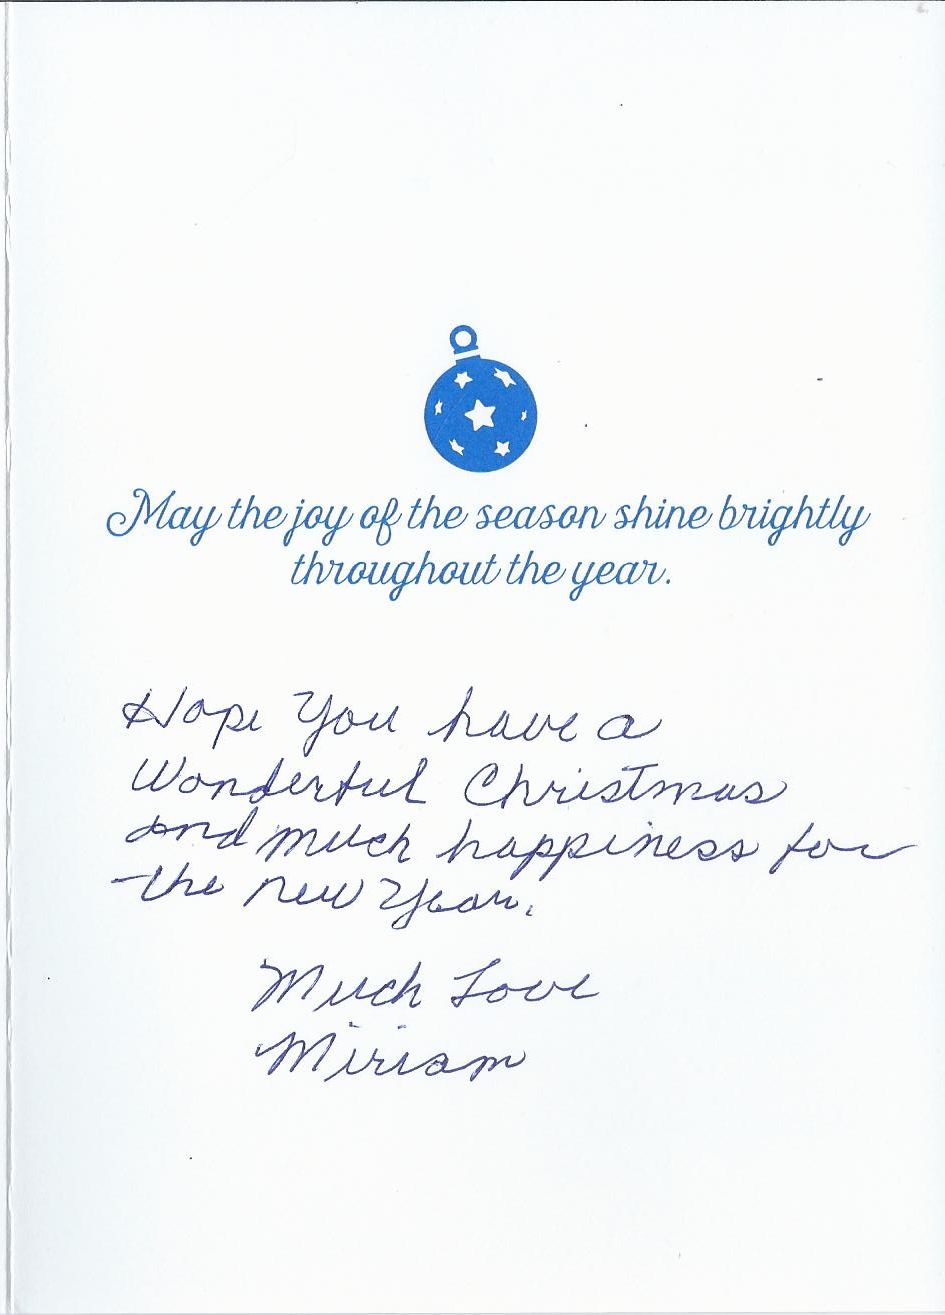 May the joy of the season shine brightly
throughout the year.
Hope You have a
Wonderful Christmas
and much happiness for
the new year.
Much Love
Miriam